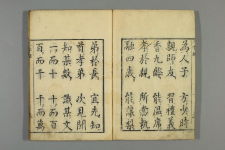 為人子 方少時
親師友 習禮義
香九齡 能溫席
孝於親 所當執
融四歲 能讓梨
弟於長 宜先知
首孝弟 次見聞
知某數 識某文
一而十 十而百
百而千 千而萬